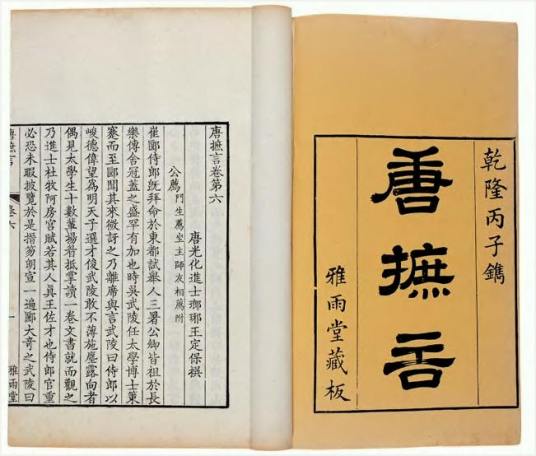 乾隆丙子鐫
唐摭言
雅雨堂藏板
唐摭言卷第六
唐光化進士瑯琊王定保撰
公薦 門生薦座主師友相薦附
崔郾侍郎既拜命於東都試舉人三署公卿皆祖於長
樂傳舍冠蓋之盛罕有加也時吳武陵任太學博士策
蹇而至郾聞其來微訝之乃離席與言武陵曰侍郎以
峻德偉望爲明天子選才俊武陵敢不薄施塵露向者
偶見太學生十數輩揚眉抵掌讀一卷文書就而觀之
乃進士杜牧阿房宮賦若其人真王佐才也侍郎官重
必恐未暇披覽於是搢笏朗宣一遍郾大奇之武陵曰
唐摭言 卷六 一 雅雨堂